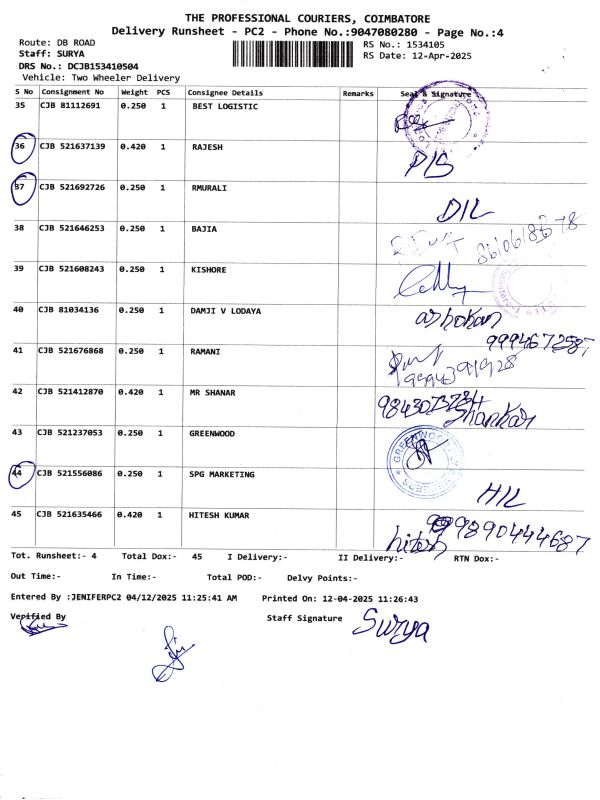 THE PROFESSIONAL COURIERS, COIMBATORE
Delivery Runsheet - PC2 - Phone No.:9047080280 - Page No.:4
Route: DB ROAD
RS No.: 1534105
Staff: SURYA
RS Date: 12-Apr-2025
DRS No.: DCJB153410504
Vehicle: Two Wheeler Delivery
S No Consignment No Weight PCS Consignee Details Remarks Seal & Signature
35 CJB 81112691 0.250 1 BEST LOGISTIC
36 CJB 521637139 0.420 1 RAJESH P/S
37 CJB 521692726 0.250 1 RMURALI D/L
38 CJB 521646253 0.250 1 BAJIA
39 CJB 521608243 0.250 1 KISHORE
40 CJB 81034136 0.250 1 DAMJI V LODAYA ashokan
9994672587
41 CJB 521676868 0.250 1 RAMANI
42 CJB 521412870 0.420 1 MR SHANAR Shankar
43 CJB 521237053 0.250 1 GREENWOOD GREENWOOD
44 CJB 521556086 0.250 1 SPG MARKETING H/L
45 CJB 521635466 0.420 1 HITESH KUMAR hitesh 9890444687
Tot. Runsheet:- 4 Total Dox:- 45 I Delivery:- II Delivery:- RTN Dox:-
Out Time:- In Time:- Total POD:- Delvy Points:-
Entered By :JENIFERPC2 04/12/2025 11:25:41 AM Printed On: 12-04-2025 11:26:43
Verified By Staff Signature Surya